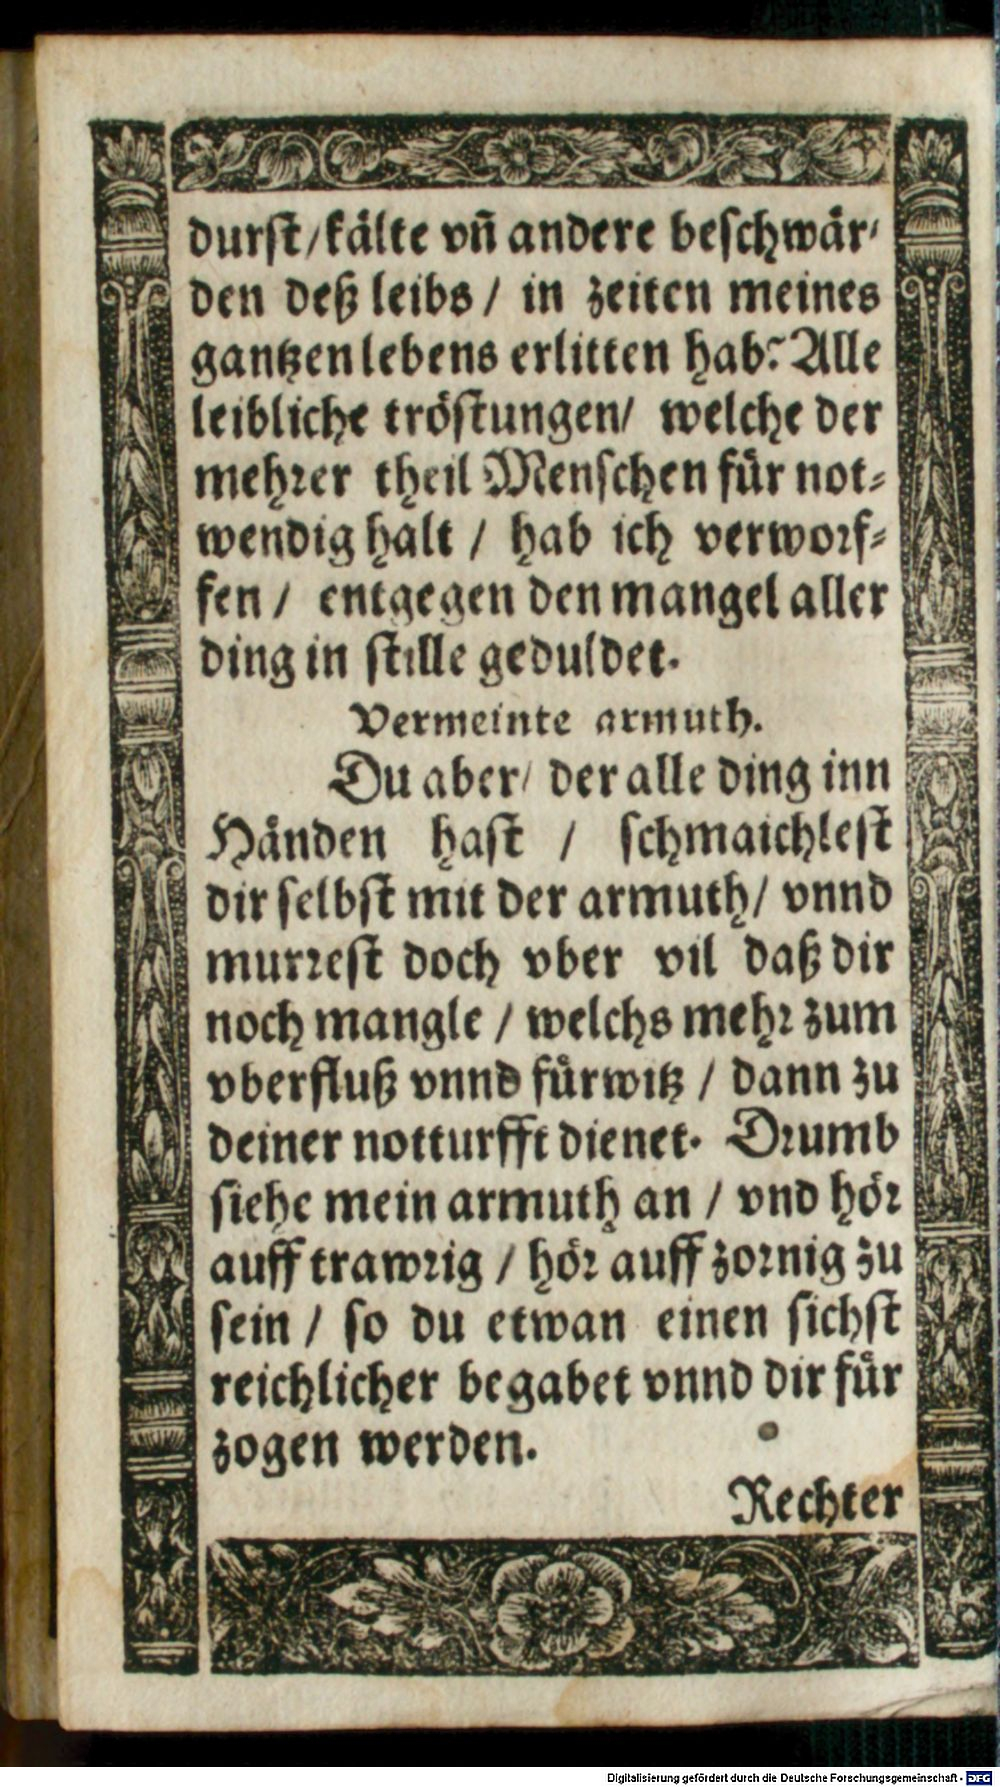 durst/kälte vñ andere beschwär-
den deß leibs / in zeiten meines
gantzen lebens erlitten hab? Alle
leibliche tröstungen/ welche der
mehrer theil Menschen für not-
wendig halt / hab ich verworf-
fen / entgegen den mangel aller
ding in stille geduldet.
Vermeinte armuth.
Du aber/ der alle ding inn
Händen hast / schmaichlest
dir selbst mit der armuth/ vnnd
murrest doch vber vil daß dir
noch mangle / welchs mehr zum
vberfluß vnnd fürwitz / dann zu
deiner notturfft dienet. Drumb
siehe mein armuth an / vnd hör
auff trawrig / hör auff zornig zu
sein / so du etwan einen sichst
reichlicher begabet vnnd dir für
zogen werden.
Rechter
Digitalisierung gefördert durch die Deutsche Forschungsgemeinschaft - DFG